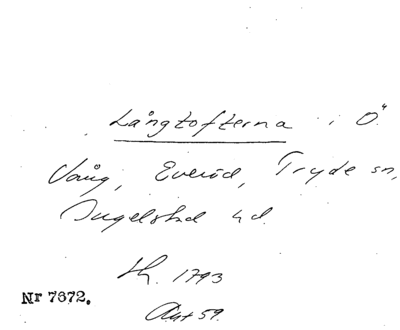 Långtofterna i Ö.
Vång, Everöd, Tryde sn,
Ingelstad hd.
Sk. 1793
Nr 7872.
Akt 59.